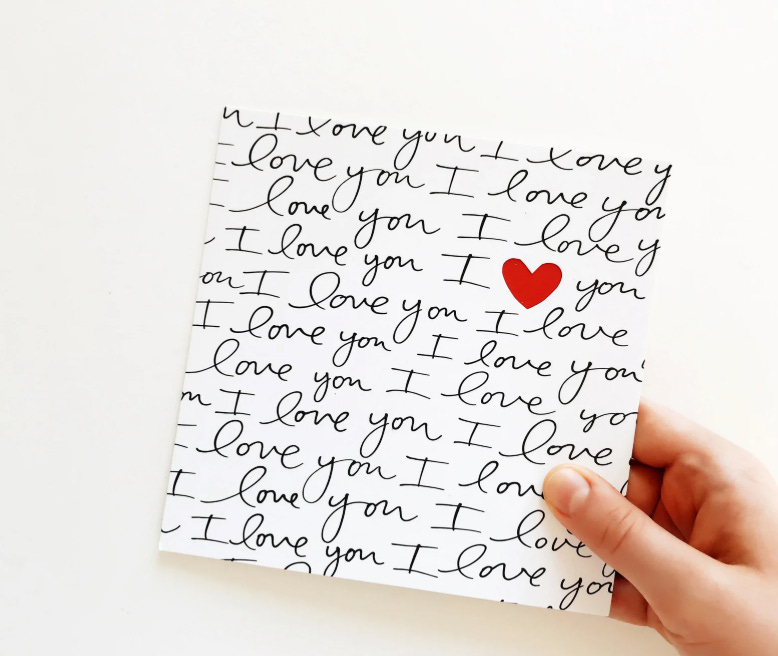 I love you I love y
I love you I love you
I love you I love y
I love you I ❤ you
ou I love you I love
I love you I love you
love you I love yo
I love you I love
I love you I love
I love you I love
I love you I love you